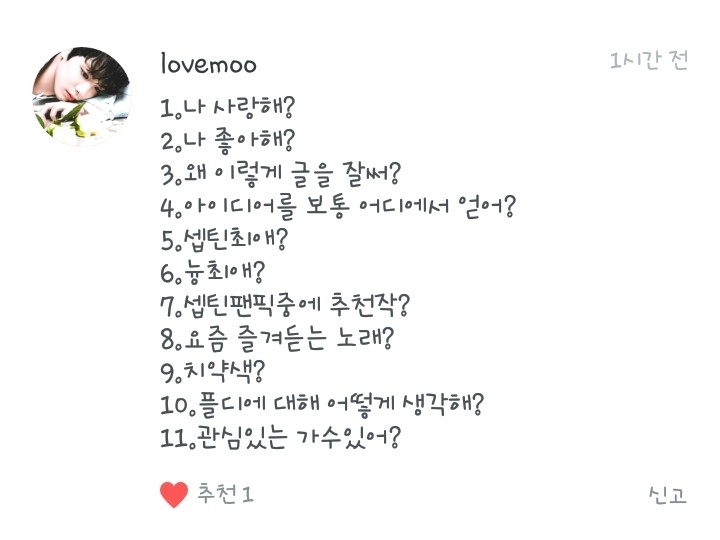 lovemoo
1시간 전
1.나 사랑해?
2.나 좋아해?
3.왜 이렇게 글을 잘써?
4.아이디어를 보통 어디에서 얻어?
5.셉틴최애?
6.늉최애?
7.셉틴팬픽중에 추천작?
8.요즘 즐겨듣는 노래?
9.치약색?
10.플디에 대해 어떻게 생각해?
11.관심있는 가수있어?
추천 1
신고